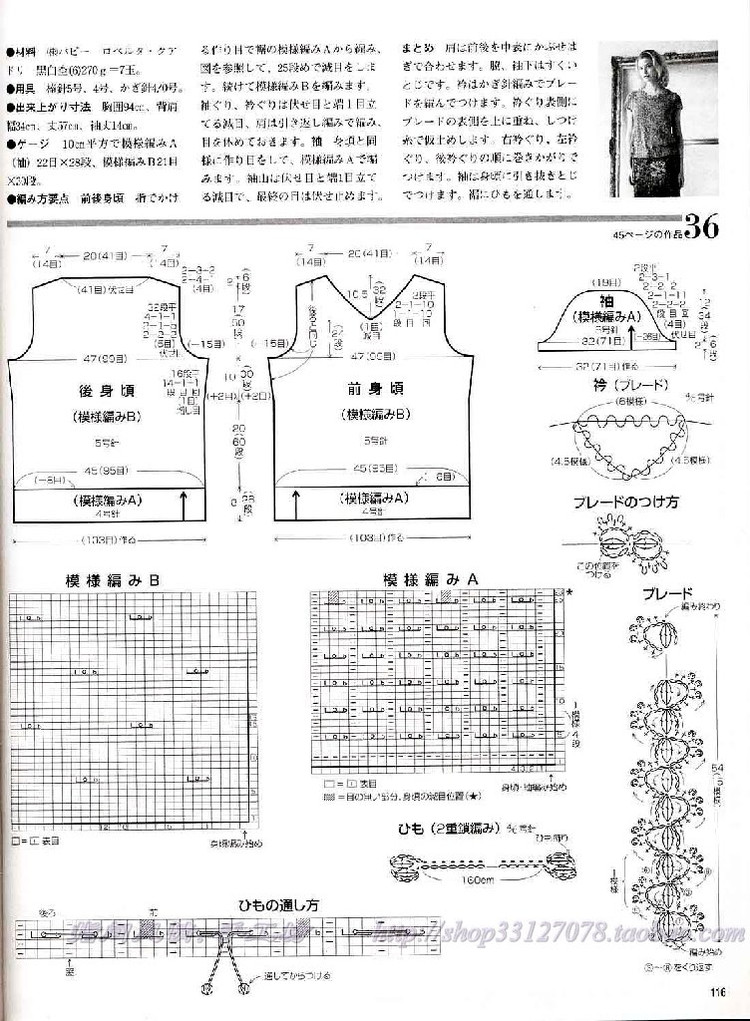 ●材料 ㈱パピー ロベルタ・クア
ドリ 黒白金(6)270g＝7玉。
●用具 棒針5号、4号、かぎ針4/0号。
●出来上がり寸法 胸囲94cm、背肩
幅34cm、丈57cm、袖丈14cm。
●ゲージ 10cm平方で模様編みA
(袖) 22目×28段、模様編みB21目
×30段。
●編み方要点 前後身頃 指でかけ
る作り目で裾の模様編みAから編み、
図を参照して、25段めで減目をしま
す。続けて模様編みBを編みます。
袖ぐり、衿ぐりは伏せ目と端1目立
てる減目、肩は引き返し編みで編み、
目を休めておきます。袖 身頃と同
様に作り目をして、模様編みAで編
みます。袖山は伏せ目と端1目立て
る減目で、最終の目は伏せ止めます。
まとめ 肩は前後を中表にかぶせは
ぎで合わせます。脇、袖下はすくい
とじです。衿はかぎ針編みでブレー
ドを編んでつけます。衿ぐり表側に
ブレードの表側を上に重ね、しつけ
糸で仮止めします。右衿ぐり、左衿
ぐり、後衿ぐりの順に巻きかがりで
つけます。袖は身頃に引き抜きとじ
でつけます。裾にひもを通します。
45ページの作品 36
7
(14目)
20(41目)
7
(14目)
(41目)伏せ目
2-3-2
2-4-1
(4目)
2
(6段)
32段平
4-1-1
2-1-6
2-3-2
(5目)
伏せ目
(-15目)
17
(50段)
47(99目)
16段平
14-1-1
段目回
(1目)
増し目
(+2目)
10
(30段)
後身頃
(模様編みB)
5号針
20
(60段)
45(95目)
(-8目)
(模様編みA)
4号針
(103目)作る
7
(14目)
20(41目)
7
(14目)
10.5
(32段)
2段平
2-1-10
1-1-10
段目回
(1目)
(-15目)
47(99目)
(+2目)
前身頃
(模様編みB)
5号針
45(95目)
(模様編みA)
4号針
(103目)作る
(19目)
2段平
2-3-1
2-2-2
2-1-11
2-2-2
段目回
(4目)
伏せ目
12
(34段)
袖
(模様編みA)
5号針
(-26目)
32(71目)
2
(6段)
32(71目)作る
衿 (ブレード)
(6模様)
4/0号針
(4.5模様)
(4.5模様)
ブレードのつけ方
この位置を
つける
ブレード
編み終わり
54
模様
1
模様
編み始め
をくり返す
模様編みB
□=｜表目
身頃編み始め
模様編みA
★
1模様
4段
□=｜表目
=目の無い部分、身頃の減目位置(★)
身頃・袖編み始め
ひも (2重鎖編み) 4/0号針
160cm
ひもの通し方
後ろ
前
脇
通してからつける
http://shop33127078.taobao.com
116